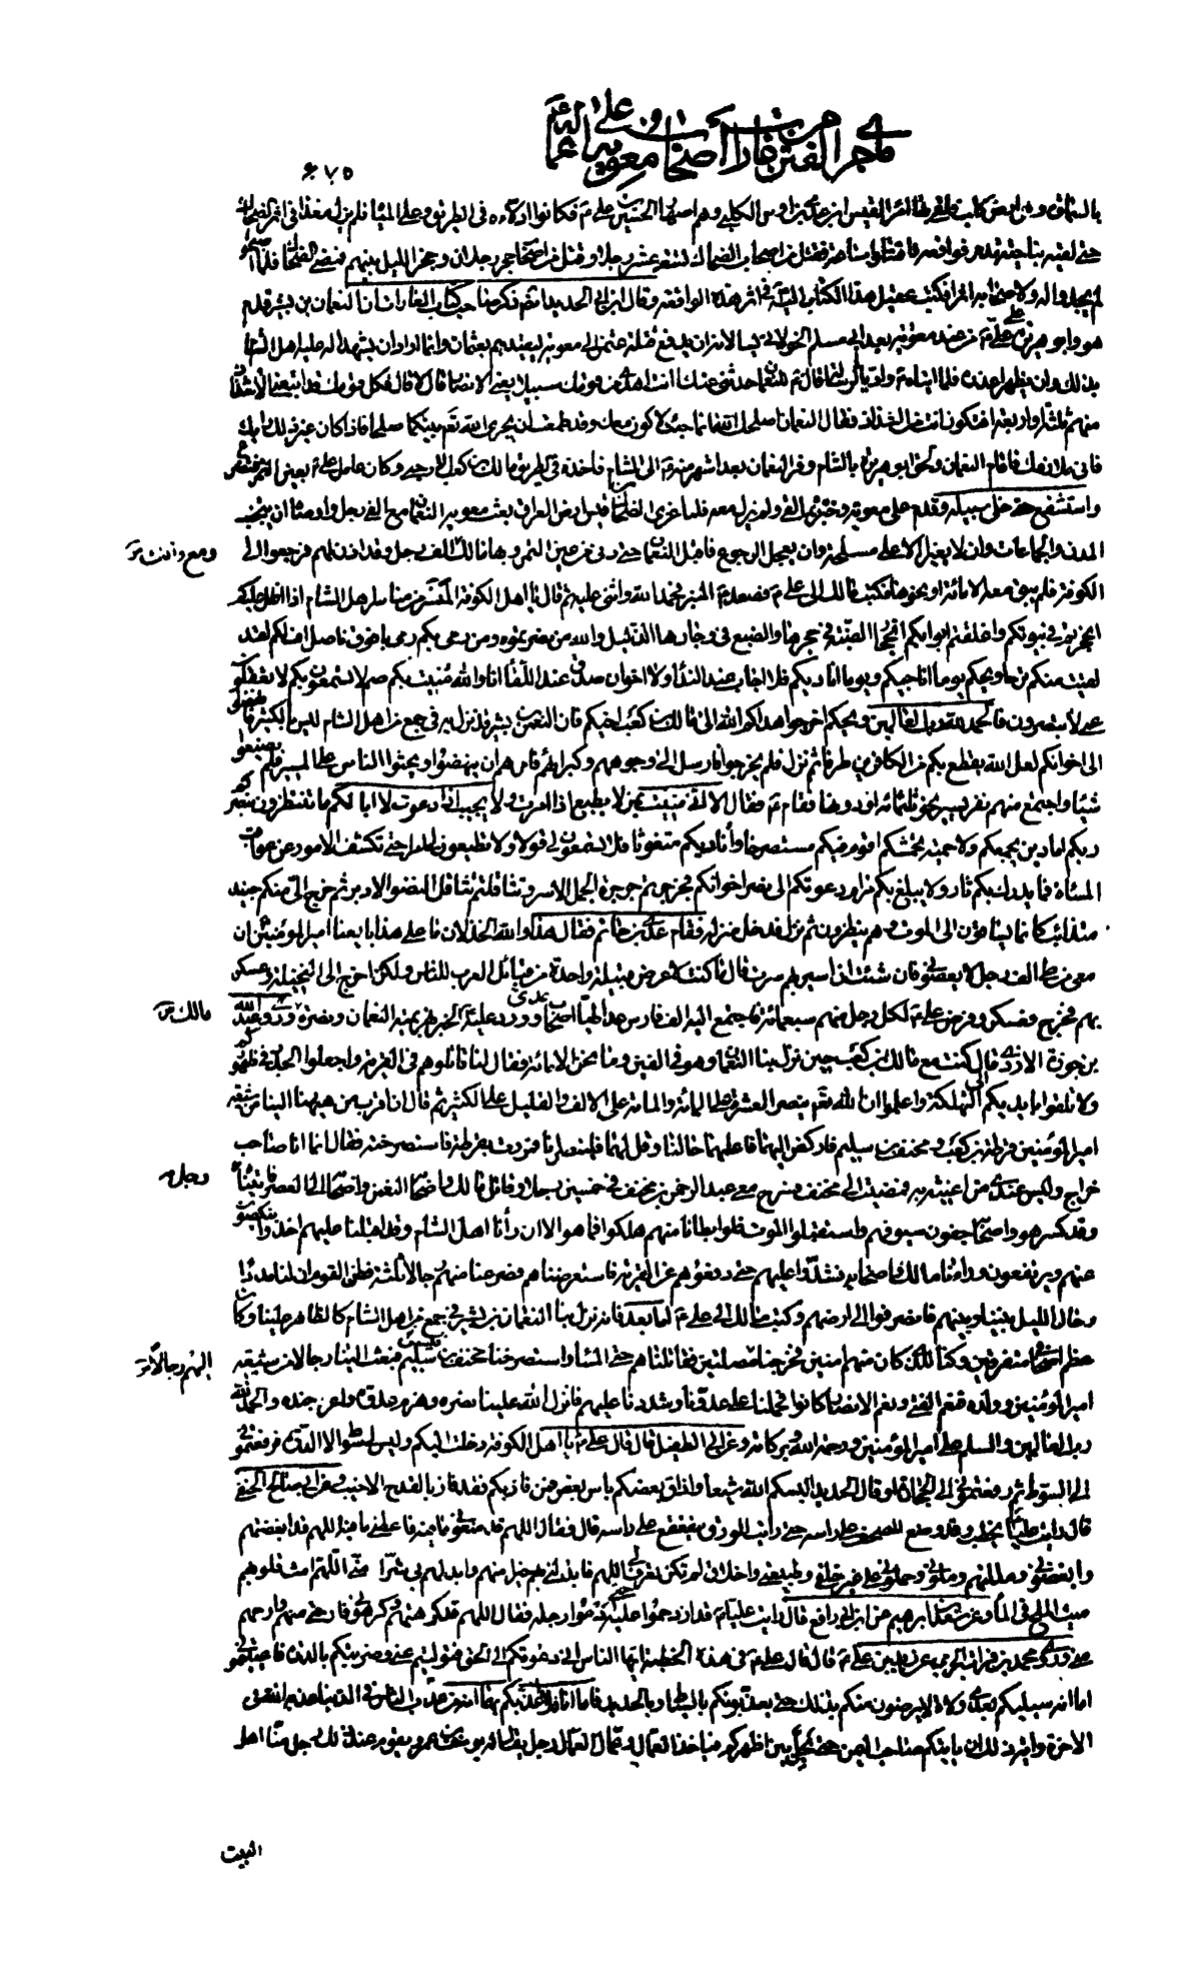 ما جرى من الفتن من غارات أصحاب معوية على أعماله
٦٧٥
حتى لقيه بناحية تدمر فواقعه فاقتتلوا ساعة فقتل من اصحاب الضحاك تسعة عشر رجلا وقتل من اصحاب حجر رجلان وحجز الليل بينهم فمضى الضحاك فلما اصبحوا
لم يجدوا له ولاصحابه اثرا فكتب عقيل هذا الكتاب اليه في اثر هذه الواقعة وقال ابن ابي الحديد ثم ذكر صاحب كتاب الغارات ان النعمان بن بشير قدم
هو وابو هريرة على علي ع من عند معوية بعد ابي مسلم الخولاني يسالانه ان يدفع قتلة عثمن الى معوية ليقيدهم بعثمان وانما اراد ان يشهدا له عند اهل الشام
بذلك وان يظهر عذره فلما اتياه ع واديا الرسالة قال ع للنعمان حدثني عنك انت اهدى قومك سبيلا يعني الانصار قال لا قال فكل قومك قد اتبعني الا شذاذ
منهم ثلثة او اربعة افتكون انت من الشذاذ فقال النعمان اصلحك الله انما جئت لاكون معك وقد طمعت ان يجري الله تعم بينكما صلحا فاذا كان غير ذلك رايك
فاني ملازمك فاقام النعمان ولحق ابو هريرة بالشام وفر النعمان بعد اشهر منه ع الى الشام فاخذه في الطريق مالك بن كعب الارحبي وكان عامل علي ع بعين التمر فتضرع
واستشفع حتى خلى سبيله وقدم على معوية وخبره بما لقي ولم يزل معه فلما غزا الضحاك بن قيس ارض العراق بعث معوية النعمان مع الفي رجل واوصاه ان يتجنب
المدن والجماعات وان لا يغير الا على مسلحة وان يعجل الرجوع فاقبل النعمان حتى دنى من عين التمر وبها مالك ومع الف رجل وقد اذن لهم فرجعوا الى
الكوفة فلم يبق معه الا مائة او نحوها فكتب مالك الى علي ع فصعد ع المنبر فحمد الله واثنى عليه ثم قال يا اهل الكوفة المنسر من مناسر اهل الشام اذا اظل عليكم
انجحرتم في بيوتكم واغلقتم ابوابكم انجحار الضبة في جحرها والضبع في وجارها الذليل والله من نصرتموه ومن رمى بكم رمى بافوق ناصل اف لكم لقد
لقيت منكم ترحا ويحكم يوما اناجيكم ويوما اناديكم فلا اجاب عند النداء ولا اخوان صدق عند اللقاء انا والله منيت بكم صم لا تسمعون بكم لا تعقلون
عمي لا تبصرون فالحمد لله رب العالمين ويحكم اخرجوا هداكم الله الى مالك بن كعب اخيكم فان النعمان بن بشير قد نزل به في جمع من اهل الشام ليس بالكثير فانهضوا
الى اخوانكم لعل الله يقطع بكم من الكافرين طرفا ثم نزل فلم يخرجوا فارسل الى وجوههم وكبرائهم فامرهم ان ينهضوا ويحثوا الناس على المسير فلم يصنعوا
شيئا واجتمع منهم نفر يسير نحو ثلثمائة او دونها فقام ع فقال الا اني منيت بمن لا يطيع اذا امرت ولا يجيب اذا دعوت لا ابا لكم ما تنتظرون بنصركم
ربكم اما دين يجمعكم ولا حمية تحمشكم اقوم فيكم مستصرخا واناديكم متغوثا فلا تسمعون لي قولا ولا تطيعون لي امرا حتى تكشف الامور عن عواقب
المساءة فما يدرك بكم ثار ولا يبلغ بكم مرام دعوتكم الى نصر اخوانكم فجرجرتم جرجرة الجمل الاسر وتثاقلتم تثاقل النضو الادبر ثم خرج الي منكم جنيد
متذائب كانما يساقون الى الموت وهم ينظرون ثم نزل فدخل منزله فقام عدي بن حاتم فقال هذا والله الخذلان ما على هذا بايعنا امير المؤمنين ان
معي من طي الف رجل لا يعصوني فان شئت ان اسير بهم سرت قال ما كنت لاعرض قبيلة واحدة من قبائل العرب للناس ولكن اخرج الى النخيلة وعسكر
بهم فخرج وعسكر وفرض علي ع لكل رجل منهم سبعمائة فاجتمع اليه الف فارس عدا طيا اصحاب عدي وورد على علي ع الخبر بهزيمة النعمان ونصرة مالك وروى عبد الله
بن حوزة الازدي قال كنت مع مالك بن كعب حين نزل بنا النعمان وهو في الفين وما نحن الا مائة فقال لنا قاتلوهم في القرية واجعلوا الجدر في ظهوركم
ولا تلقوا بايديكم الى التهلكة واعلموا ان الله تعم ينصر العشرة على المائة والمائة على الالف والقليل على الكثير ثم قال ان اقرب من هيهنا الينا من شيعة
امير المؤمنين قرظة بن كعب ومخنف بن سليم فاركض اليهما فاعلمهما حالنا وقل لهما فلينصرانا فمررت بقرظة فاستصرخته فقال انما انا صاحب
خراج وليس عندي من اغيثه به فمضيت الى مخنف فسرح معي عبد الرحمن بن مخنف في خمسين رجلا وقاتل مالك بن كعب النعمان واصحابه الى العصر فاتيناه
وقد كسر هو واصحابه جفون سيوفهم واستقبلوا الموت فلو ابطانا منهم هلكوا فما هو الا ان رأنا اهل الشام وقد اقبلنا عليهم اخذوا ينكصون
عنهم ويرتفعون ورآنا مالك واصحابه فشدوا عليهم حتى دفعوهم عن القرية فاستعرضناهم فصرعنا منهم رجالا ثلثة فظن القوم ان لنا مددا
وحال الليل بيننا وبينهم فانصرفوا الى ارضهم وكتب مالك الى علي ع اما بعد فانه نزل بنا النعمان بن بشير في جمع من اهل الشام كالظاهر علينا وكان
عظم اصحابي متفرقين وكنا للذي كان منهم امنين فخرجنا رجالا مصلتين فقاتلناهم حتى المساء واستصرخنا مخنف بن سليم فبعث الينا رجالا من شيعة
امير المؤمنين وولده فنعم الفتى ونعم الانصار كانوا فحملنا على عدونا وشددنا عليهم فانزل الله علينا نصره وهزم عدوه واعز جنده والحمد لله
رب العالمين والسلم على امير المؤمنين ورحمة الله وبركاته وعن ابي الطفيل قال قال علي ع يا اهل الكوفة دخلت اليكم وليس لي سوط الا الدرة فرفعتموني
الى السوط ثم رفعتموني الى الحجارة او قال الحديد البسكم الله شيعا واذاق بعضكم باس بعض فمن فاز بكم فقد فاز بالقدح الاخيب وعن ابي صالح الحنفي
قال رايت عليا يخطب وقد وضع المصحف على راسه حتى رايت الورق يتقعقع على راسه قال فقال اللهم قد منعوني ما فيه فاعطني ما فيه اللهم قد ابغضتهم
وابغضوني ومللتهم وملوني وحملوني على غير خلقي وطبيعتي واخلاق لم تكن تعرف لي اللهم فابدلني بهم خيرا منهم وابدلهم بي شرا مني اللهم امث قلوبهم
ميث الملح في الماء وعن سعد بن ابرهيم عن ابن ابي رافع قال رايت عليا ع قد ازدحموا عليه حتى ادموا رجله فقال اللهم قد كرهتهم وكرهوني فارحني منهم وارحهم
مني وذكر محمد بن فرات الجرمي عن زيد بن علي ع قال قال علي ع في هذه الخطبة ايها الناس اني دعوتكم الى الحق فتوليتم عني وضربتكم بالدرة فاعييتموني
اما انه سيليكم بعدي ولاة لا يرضون منكم بذلك حتى يعذبونكم بالسياط وبالحديد فاما انا فلا اعذبكم بهما انه من عذب الناس في الدنيا عذبه الله في
الاخرة واية ذلك ان ياتيكم صاحب اليمن حتى يحل بين اظهركم فياخذ العمال وعمال العمال رجل يقال له يوسف بن عمرو ويقوم عند ذلك رجل منا اهل
البيت